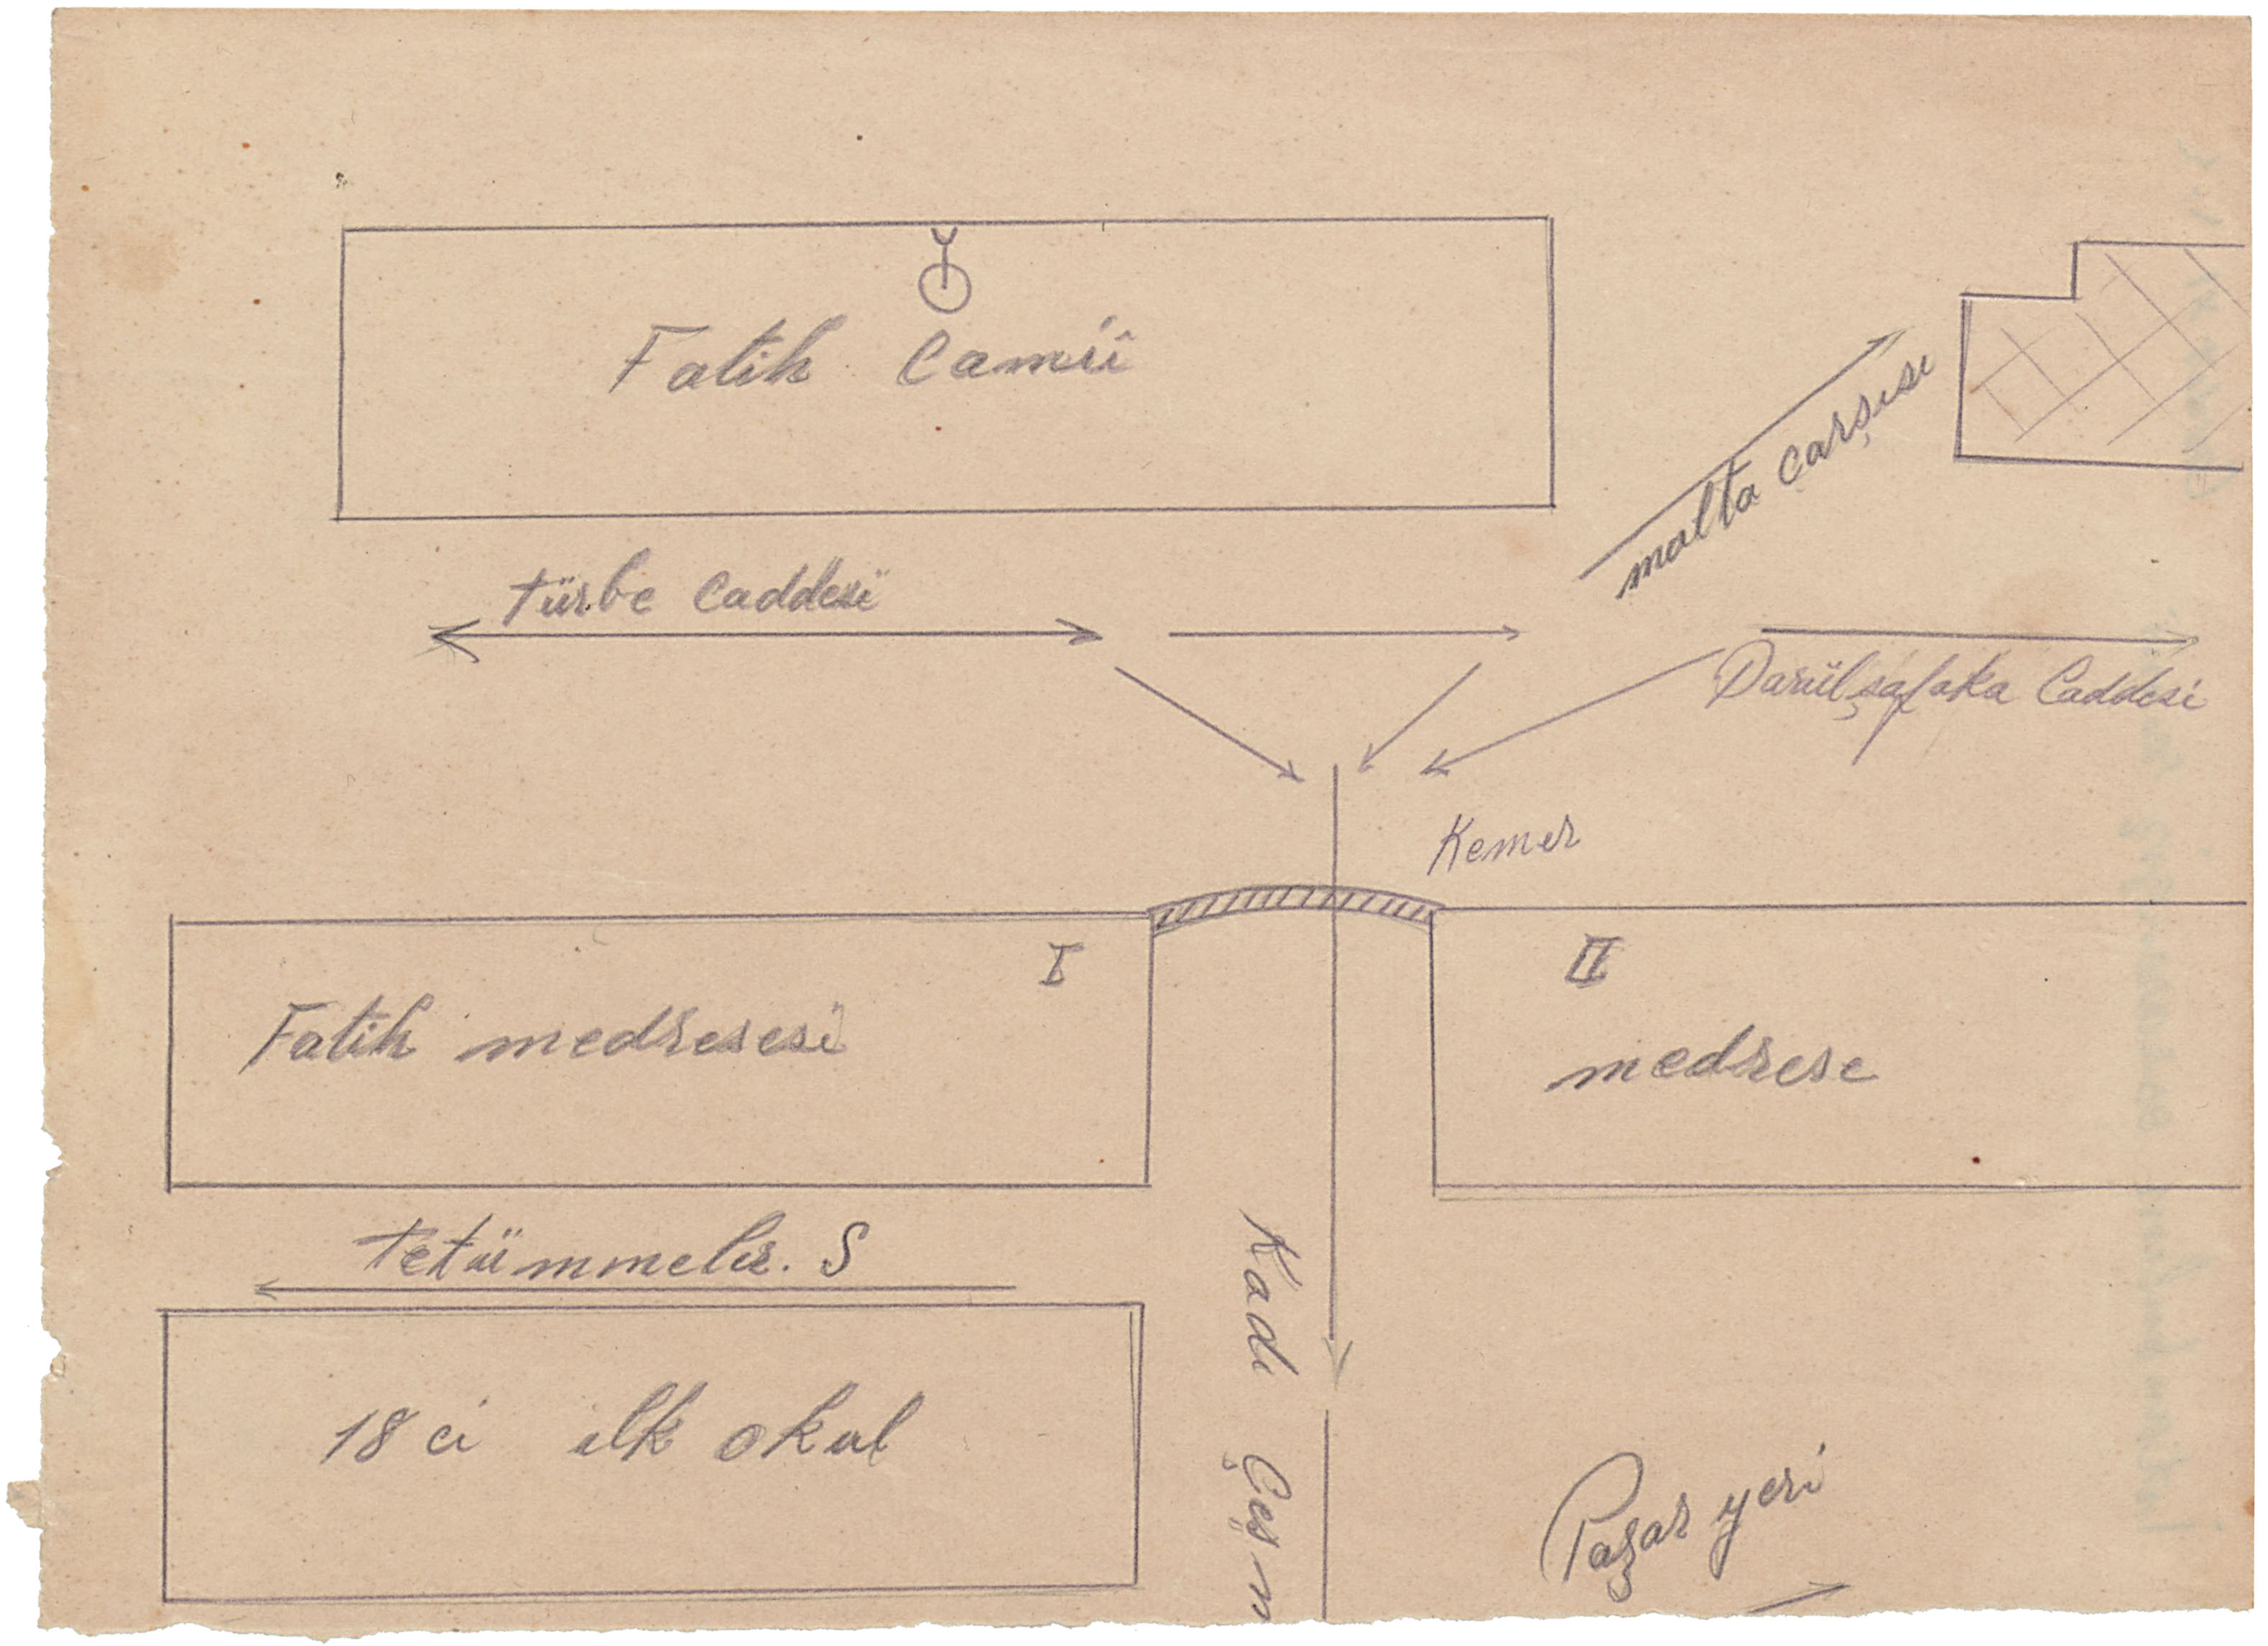 Fatih Camii
malta çarşısı
türbe Caddesi
Darülşafaka Caddesi
Kemer
I
II
Fatih medresesi
medrese
tetümmeler. S
Kadı Çeşm
18 ci ilk okul
Pazar yeri